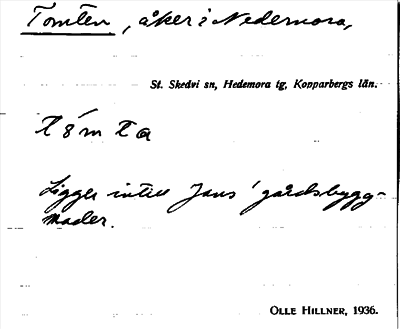 Tomten, åker i Nedernora,
St. Skedvi sn, Hedemora tg, Kopparbergs län.
Ligger intill Jans' gårdsbygg-
nader.
OLLE HILLNER, 1936.